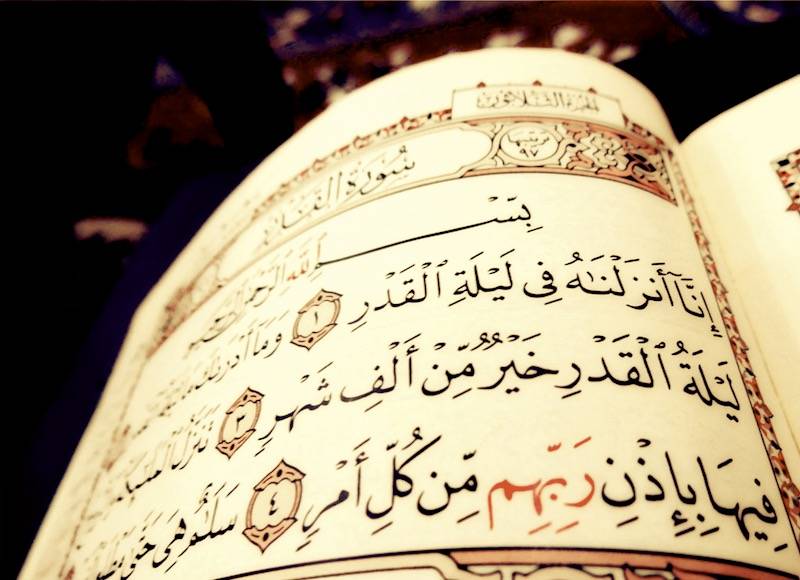 الجزء الثلاثون
سُورَةُ القَدْرِ
ترتيبها ٩٧
بِسْمِ اللَّهِ الرَّحْمَٰنِ الرَّحِيمِ
إِنَّآ أَنزَلْنَٰهُ فِى لَيْلَةِ ٱلْقَدْرِ ١ وَمَآ أَدْرَىٰكَ مَا
لَيْلَةُ ٱلْقَدْرِ خَيْرٌ مِّنْ أَلْفِ شَهْرٍ ٣ تَنَزَّلُ
فِيهَا بِإِذْنِ رَبِّهِم مِّن كُلِّ أَمْرٍ ٤ سَلَٰمٌ هِىَ حَتَّىٰ